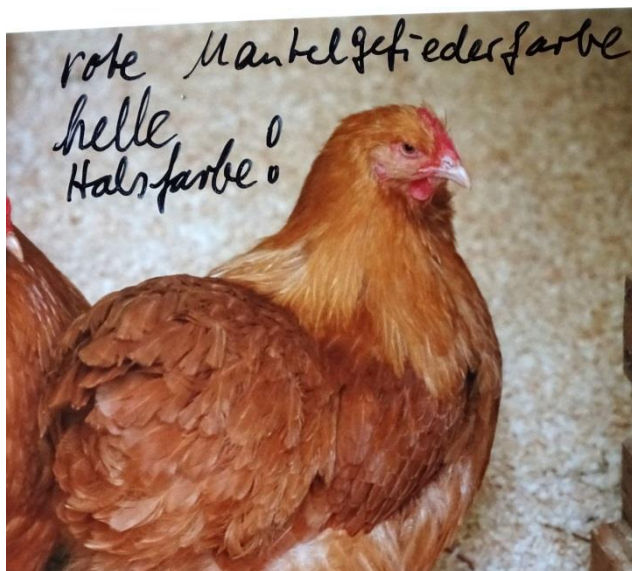 rote Mantelgefiederfarbe
helle
Halsfarbe!